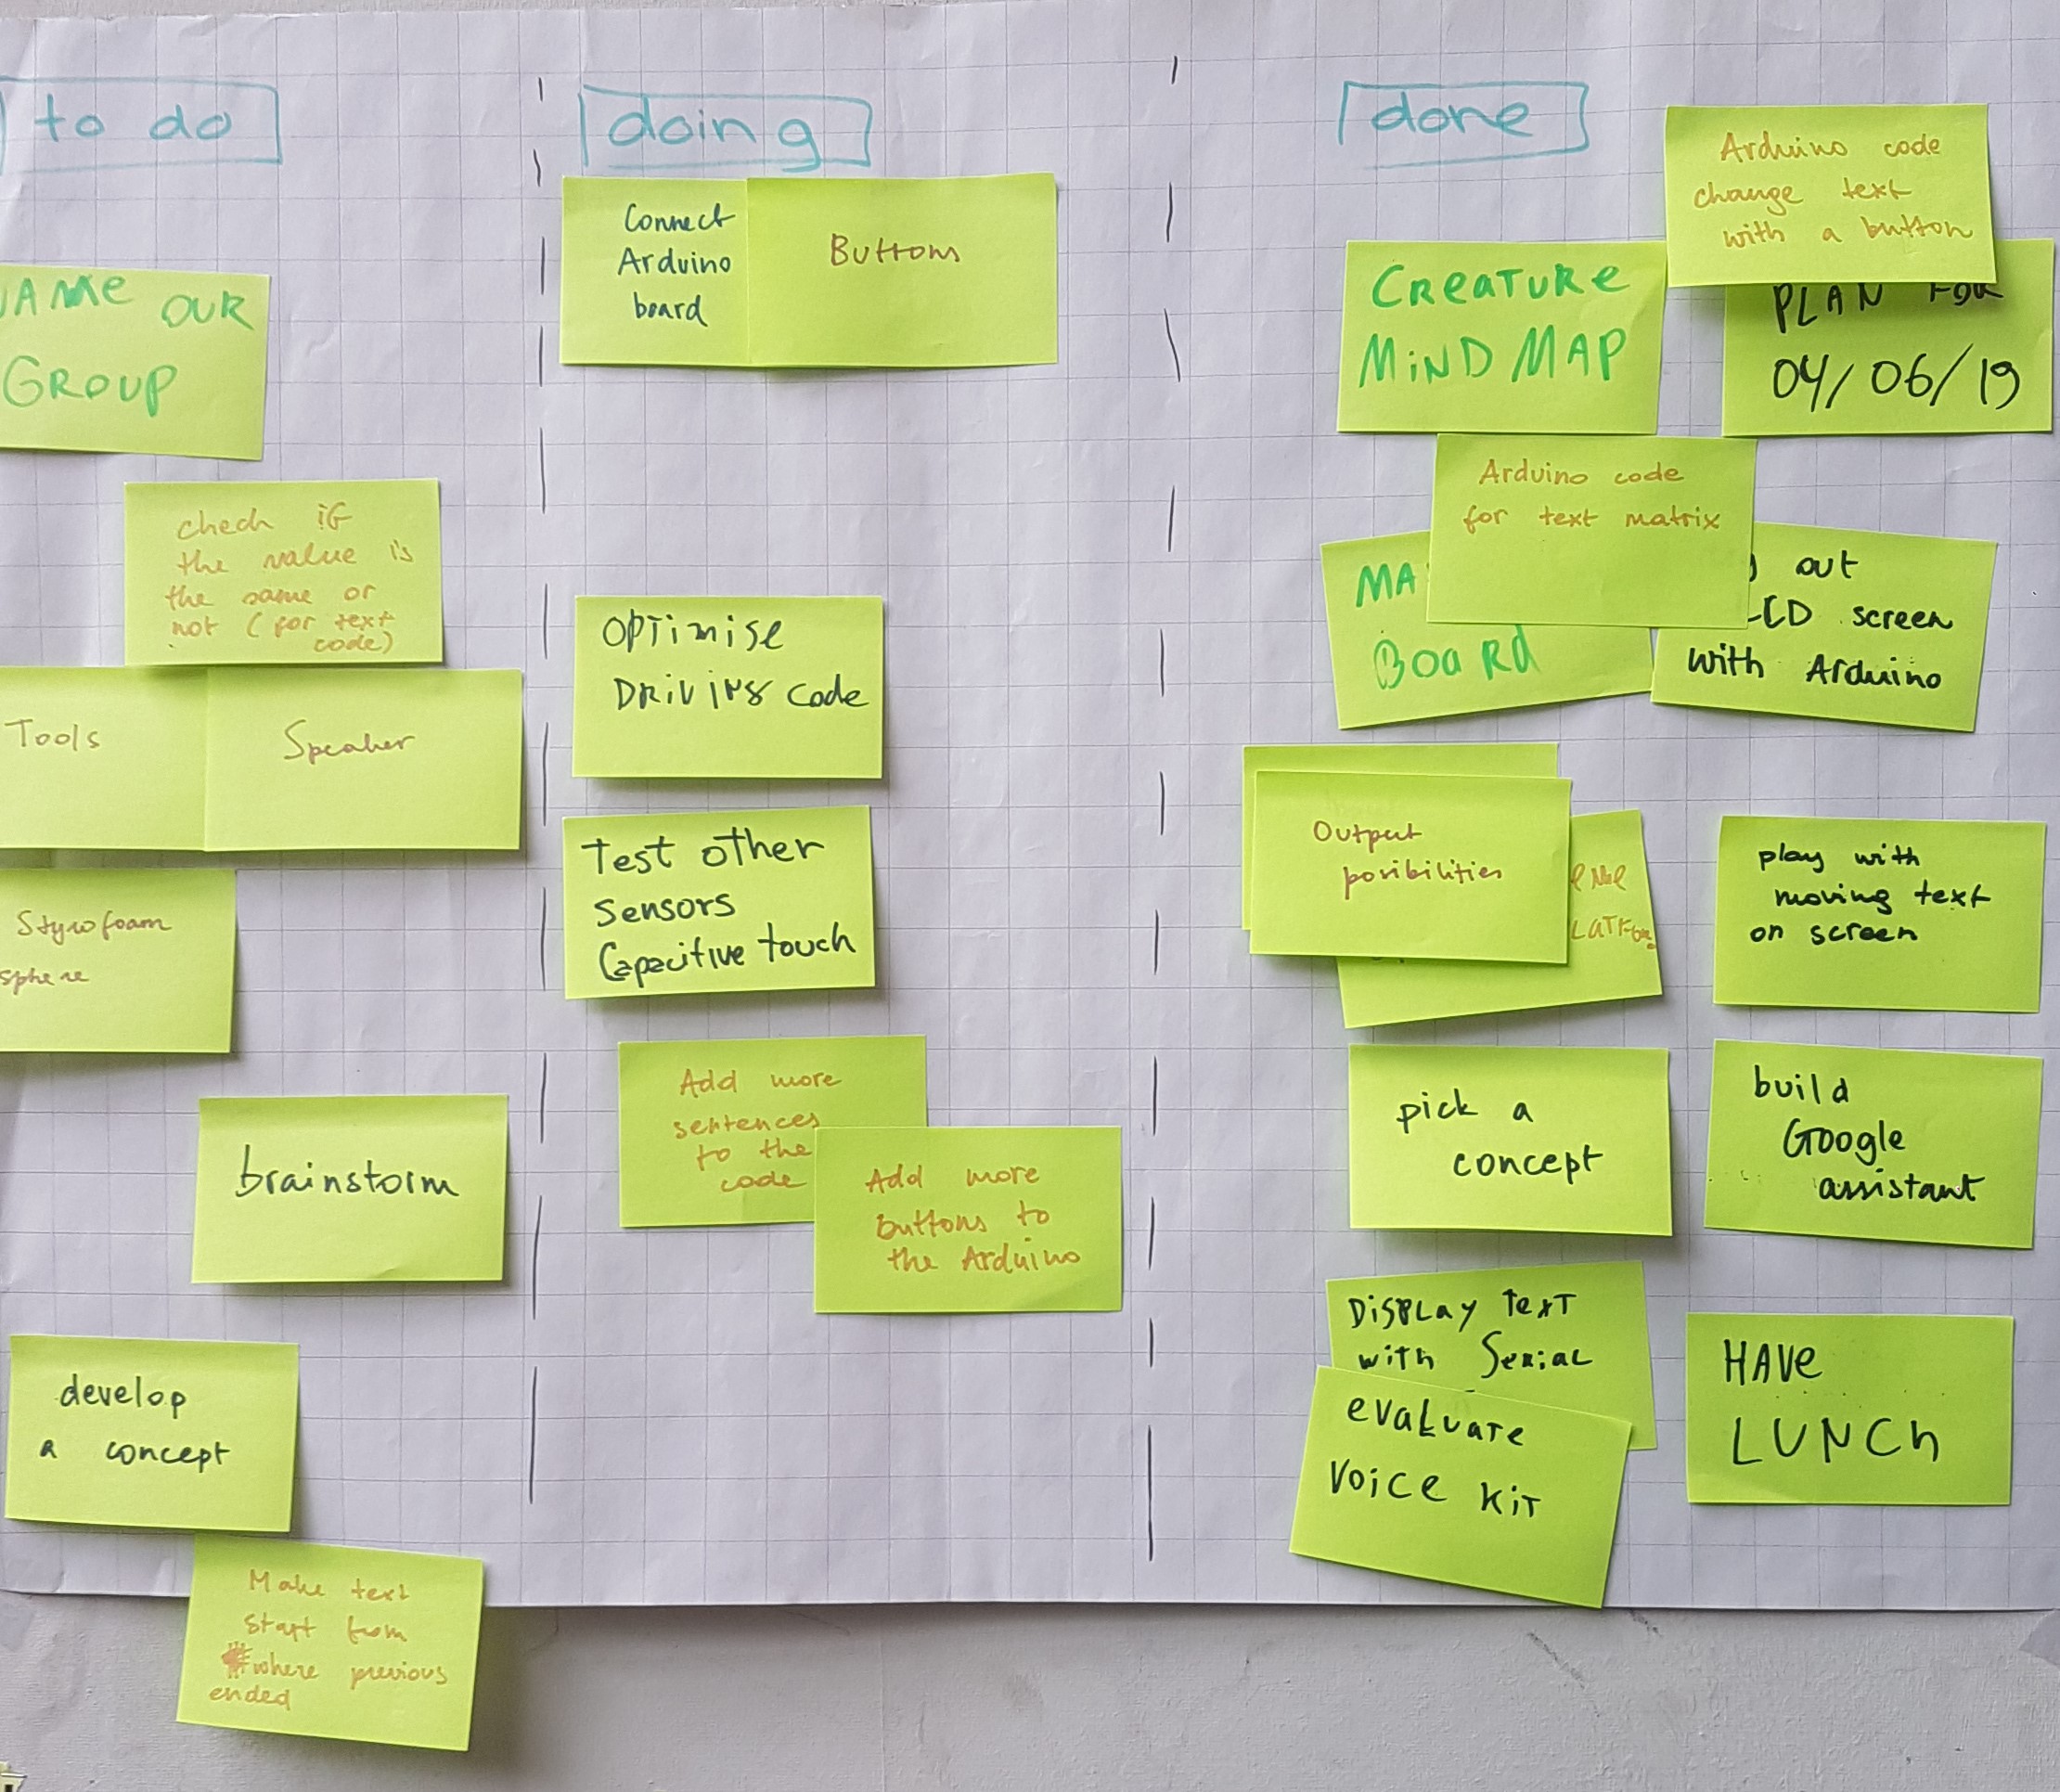 to do
OUR
GROUP
chech if
the value is
the same or
not (for text
code)
Tools
Speaker
Styrofoam
sphere
brainstorm
develop
a concept
Make text
start from
where previous
ended
doing
Connect
Arduino
board
Buttons
OPTIMISE
DRIVING code
Test other
sensors
Capacitive touch
Add more
sentences
to the
code
Add more
buttons to
the Arduino
done
Arduino code
change text
with a button
CREATURE
MIND MAP
PLAN FOR
04/06/19
Arduino code
for text matrix
BOARD
out
screen
with Arduino
Output
posibilities
play with
moving text
on screen
pick a
concept
build
Google
assistant
DISPLAY TEXT
with SERIAL
evaluate
VOICE KIT
HAVE
LUNCH